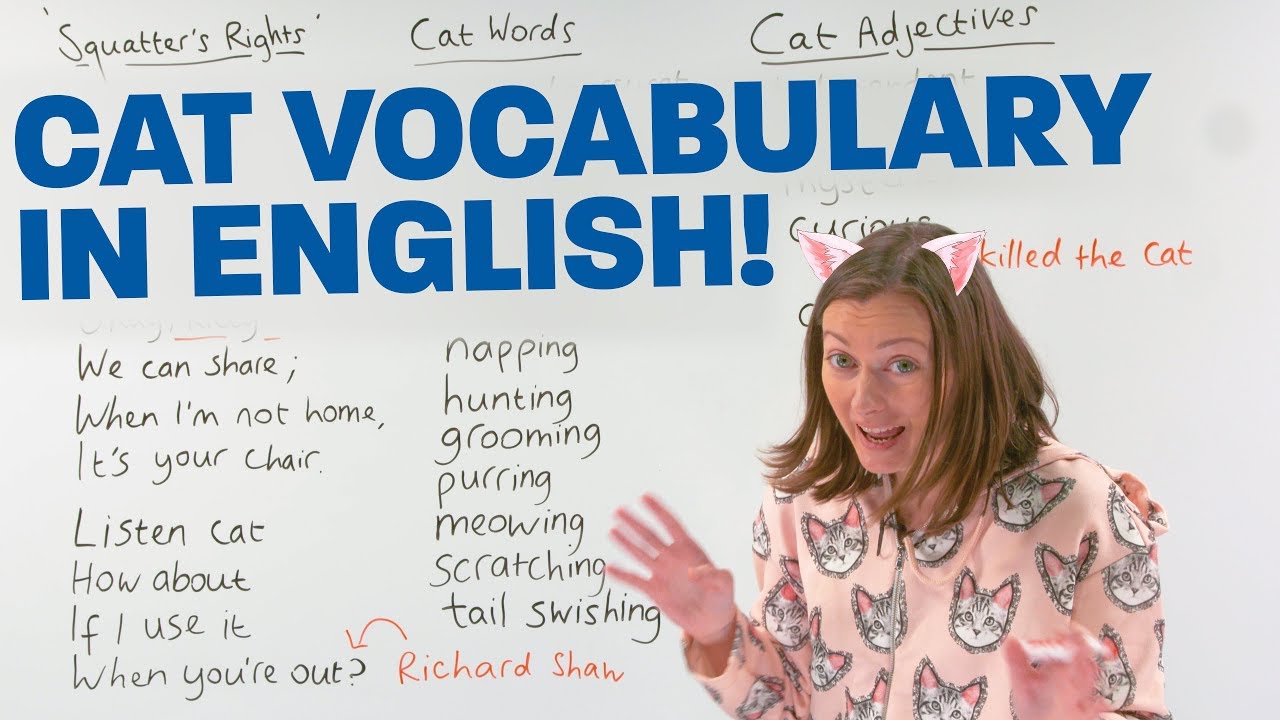 'Squatter's Rights'
We can share;
When I'm not home,
It's your chair.
Listen cat
How about
If I use it
When you're out?
Richard Shaw
Cat Words
napping
hunting
grooming
purring
meowing
scratching
tail swishing
Cat Adjectives
curious
killed the cat
CAT VOCABULARY
IN ENGLISH!